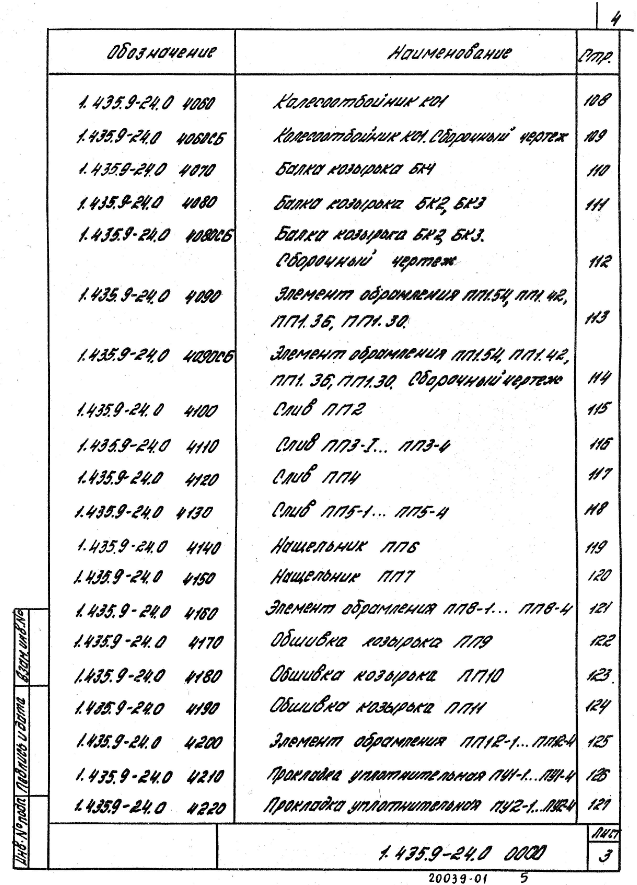 4
Обозначение Наименование Стр.
1.435.9-24.0 4060 Колесоотбойник КО1 108
1.435.9-24.0 4060СБ Колесоотбойник КО1. Сборочный чертеж 109
1.435.9-24.0 4070 Балка козырька БК1 110
1.435.9-24.0 4080 Балка козырька БК2, БК3 111
1.435.9-24.0 4080СБ Балка козырька БК2, БК3.
Сборочный чертеж 112
1.435.9-24.0 4090 Элемент обрамления ПП1.54, ПП1.42,
ПП1.36, ПП1.30. 113
1.435.9-24.0 4090СБ Элемент обрамления ПП1.54, ПП1.42,
ПП1.36, ПП1.30. Сборочный чертеж 114
1.435.9-24.0 4100 Слив ПП2 115
1.435.9-24.0 4110 Слив ПП3-1... ПП3-4 116
1.435.9-24.0 4120 Слив ПП4 117
1.435.9-24.0 4130 Слив ПП5-1... ПП5-4 118
1.435.9-24.0 4140 Нащельник ПП6 119
1.435.9-24.0 4150 Нащельник ПП7 120
1.435.9-24.0 4160 Элемент обрамления ПП8-1... ПП8-4 121
1.435.9-24.0 4170 Обшивка козырька ПП9 122
1.435.9-24.0 4180 Обшивка козырька ПП10 123
1.435.9-24.0 4190 Обшивка козырька ПП11 124
1.435.9-24.0 4200 Элемент обрамления ПП12-1... ПП12-4 125
1.435.9-24.0 4210 Прокладка уплотнительная ПУ1-1... ПУ1-4 126
1.435.9-24.0 4220 Прокладка уплотнительная ПУ2-1... ПУ2-4 127
Взам. инв. №
Подпись и дата
Инв. № подл.
1.435.9-24.0 0000
Лист
3
20039-01 5